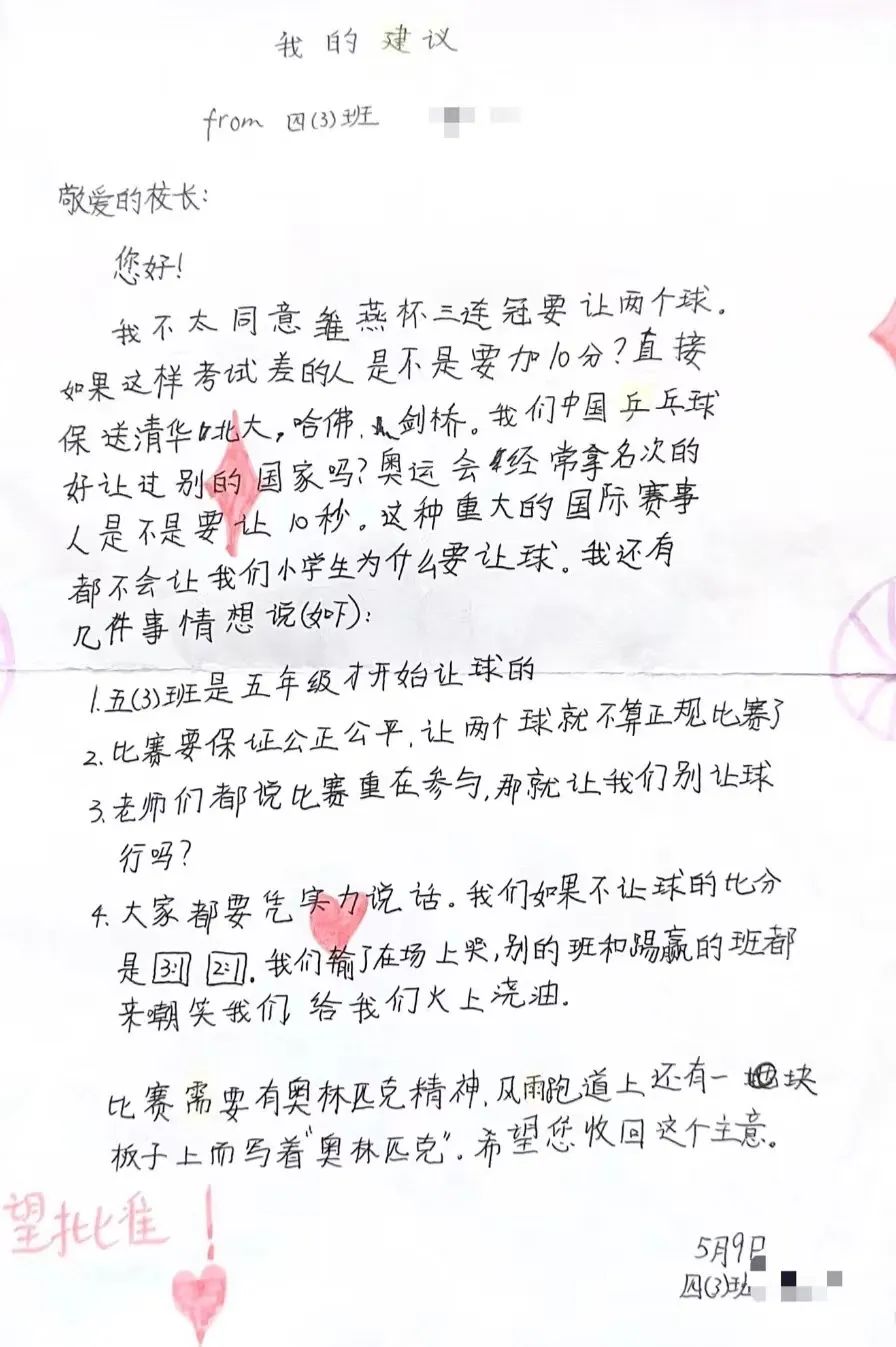 我的建议
from 四(3)班
敬爱的校长:
您好!
我不太同意雏燕杯三连冠要让两个球。
如果这样考试差的人是不是要加10分?直接
保送清华北大,哈佛、剑桥。我们中国乒乓球
好让过别的国家吗?奥运会经常拿名次的
人是不是要让10秒。这种重大的国际赛事
都不会让我们小学生为什么要让球。我还有
几件事情想说(如下):
1.五(3)班是五年级才开始让球的
2.比赛要保证公正公平,让两个球就不算正规比赛了
3.老师们都说比赛重在参与,那就让我们别让球
行吗?
4.大家都要凭实力说话。我们如果不让球的比分
是3:1 2:1.我们输了在场上哭,别的班和踢赢的班都
来嘲笑我们,给我们火上浇油.
比赛需要有奥林匹克精神.风雨跑道上还有一块
板子上而写着"奥林匹克".希望您收回这个主意。
望批准!
5月9日
四(3)班